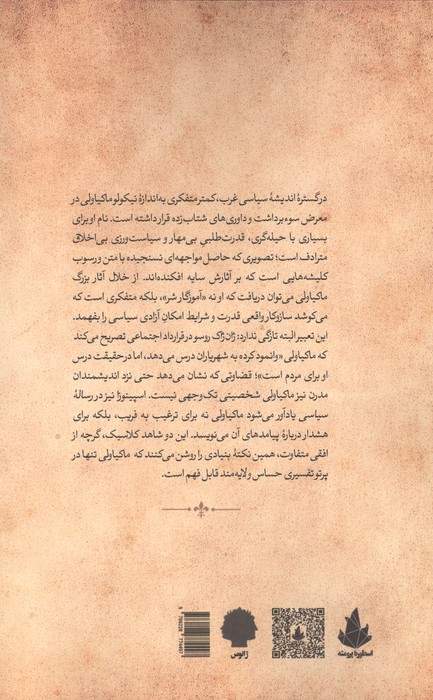 در گسترهٔ اندیشهٔ سیاسی غرب، کمتر متفکری به‌اندازهٔ نیکولو ماکیاولی در
معرض سوءبرداشت و داوری‌های شتاب‌زده قرار داشته است. نام او برای
بسیاری با حیله‌گری، قدرت‌طلبیِ بی‌مهار و سیاست‌ورزیِ بی‌اخلاق
مترادف است؛ تصویری که حاصل مواجهه‌ای نسنجیده با متن و رسوب
کلیشه‌هایی است که بر آثارش سایه افکنده‌اند. از خلال آثار بزرگ
ماکیاولی می‌توان دریافت که او نه «آموزگار شر»، بلکه متفکری است که
می‌کوشد سازوکار واقعی قدرت و شرایط امکانِ آزادی سیاسی را بفهمد.
این تعبیر البته تازگی ندارد: ژان‌ژاک روسو در قرارداد اجتماعی تصریح می‌کند
که ماکیاولی «وانمود کرده به شهریاران درس می‌دهد، اما در حقیقت درس
او برای مردم است»؛ قضاوتی که نشان می‌دهد حتی نزد اندیشمندان
مدرن نیز ماکیاولی شخصیتی تک‌وجهی نیست. اسپینوزا نیز در رسالهٔ
سیاسی یادآور می‌شود ماکیاولی نه برای ترغیب به فریب، بلکه برای
هشدار دربارهٔ پیامدهای آن می‌نویسد. این دو شاهد کلاسیک، گرچه از
افقی متفاوت، همین نکتهٔ بنیادی را روشن می‌کنند که ماکیاولی تنها در
پرتو تفسیری حساس و لایه‌مند قابل فهم است.
ژانوس
اسطوره پرومته